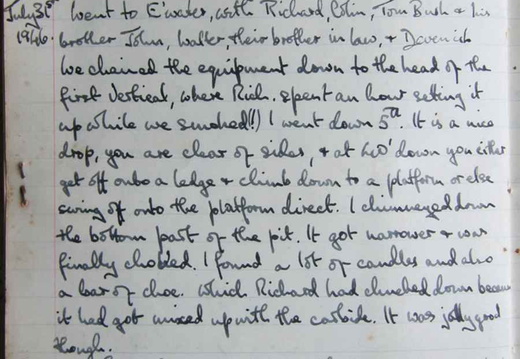 July 31st went to E'water, with Richard, Colin, Tom Bush & his
1946. brother John, Walker, their brother in law, & Devenish
We chained the equipment down to the head of the
first Vertical, where Rich. spent an hour setting it
up while we smoked!!) I went down 5th. It is a nice
drop, you are clear of sides, & at 40' down you either
get off onto a ledge & climb down to a platform or else
swing off onto the platform direct. I chimneyed down
the bottom part of the pit. It got narrower & was
finally choked. I found a lot of candles and also
a bar of choc. which Richard had chucked down because
it had got mixed up with the carbide. It was jolly good
though.